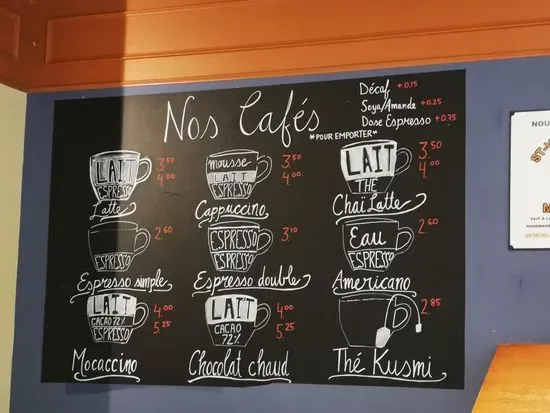 Nos Cafés
*POUR EMPORTER*
Décaf +0.15
Soya/Amande +0.25
Dose Espresso +0.75
LAIT
ESPRESSO
3.50
4.00
Latte
mousse
LAIT
ESPRESSO
3.50
4.00
Cappuccino
LAIT
THÉ
3.50
4.00
Chaï Latte
ESPRESSO
2.60
Espresso simple
ESPRESSO
ESPRESSO
3.10
Espresso double
Eau
ESPRESSO
2.60
Americano
LAIT
CACAO 72%
ESPRESSO
4.00
5.25
Mocaccino
LAIT
CACAO
72%
4.00
5.25
Chocolat chaud
2.85
Thé Kusmi
NOU
ST-
M
FAIT À L
HANDMADE
www.